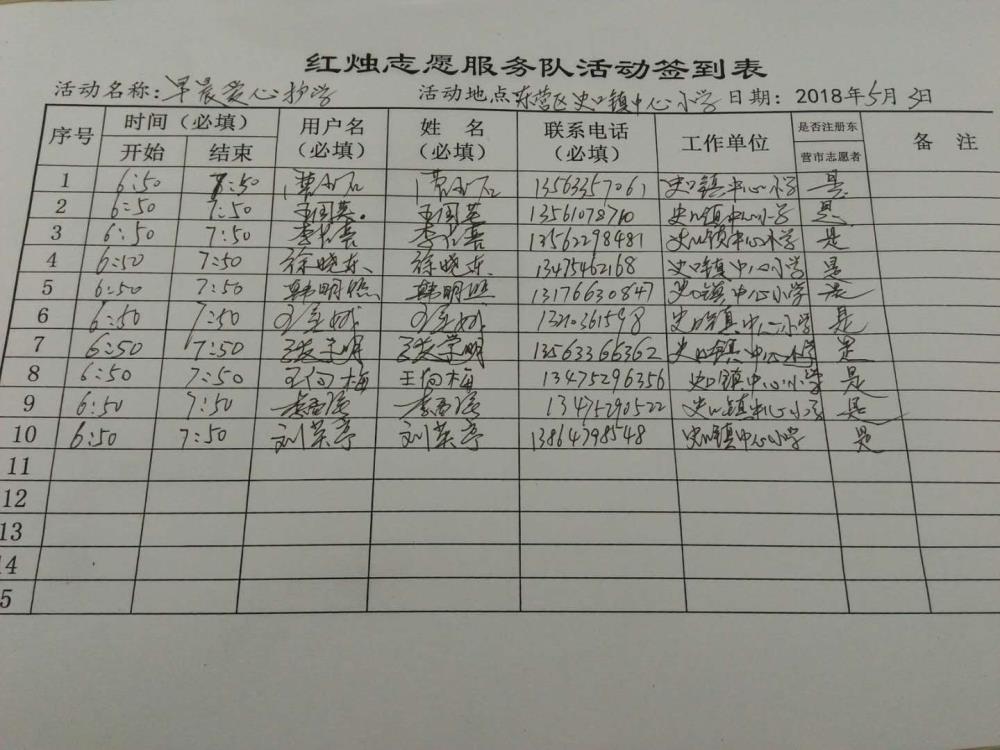 红烛志愿服务队活动签到表
活动名称：早晨爱心护学 活动地点 东营区史口镇中心小学 日期：2018年5月3日
序号 时间（必填） 用户名（必填） 姓名（必填） 联系电话（必填） 工作单位 是否注册东营市志愿者 备注
开始 结束
1 6:50 7:50 13563357061 史口镇中心小学 是
2 6:50 7:50 王国英 王国英 13561078710 史口镇中心小学 是
3 6:50 7:50 13562298481 史口镇中心小学 是
4 6:50 7:50 徐晓东 徐晓东 13475462168 史口镇中心小学 是
5 6:50 7:50 韩明 韩明 13176630847 史口镇中心小学 是
6 6:50 7:50 史口镇中心小学 是
7 6:50 7:50 张学明 张学明 13563366362 史口镇中心小学 是
8 6:50 7:50 王向梅 王向梅 13475296356 史口镇中心小学 是
9 6:50 7:50 13475290522 史口镇中心小学 是
10 6:50 7:50 刘荣亭 刘荣亭 13864798548 史口镇中心小学 是
11
12
13
4
5